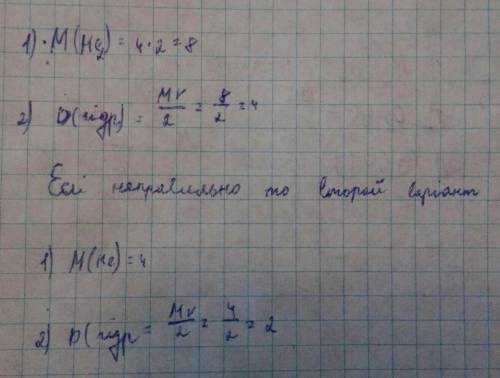 1) M(He₂) = 4·2 = 8
2) D(гідр) = Mr/2 = 8/2 = 4
Если неправильно то второй варіант
1) M(He) = 4
2) D(гідр = Mr/2 = 4/2 = 2